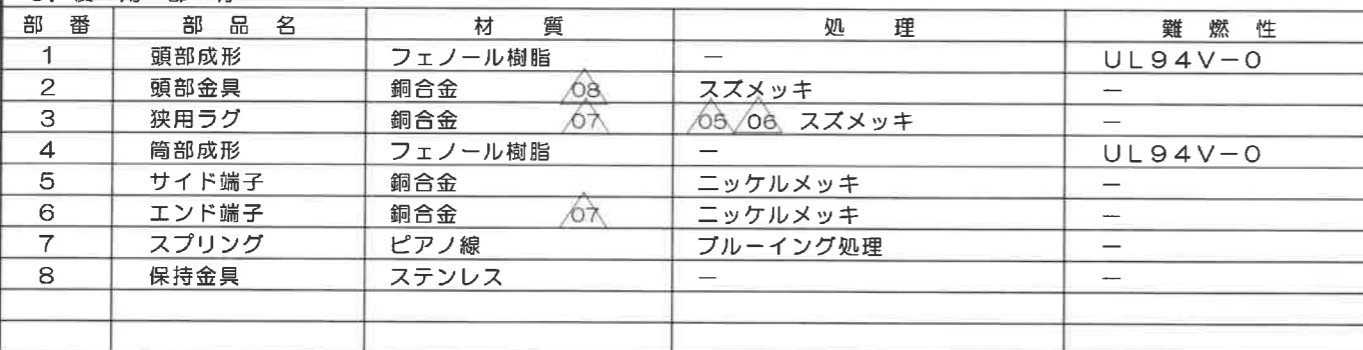 部 番 部 品 名 材 質 処 理 難 燃 性
1 頭部成形 フェノール樹脂 － UL94V－0
2 頭部金具 銅合金 08 スズメッキ －
3 狭用ラグ 銅合金 07 05 06 スズメッキ －
4 筒部成形 フェノール樹脂 － UL94V－0
5 サイド端子 銅合金 ニッケルメッキ －
6 エンド端子 銅合金 07 ニッケルメッキ －
7 スプリング ピアノ線 ブルーイング処理 －
8 保持金具 ステンレス － －